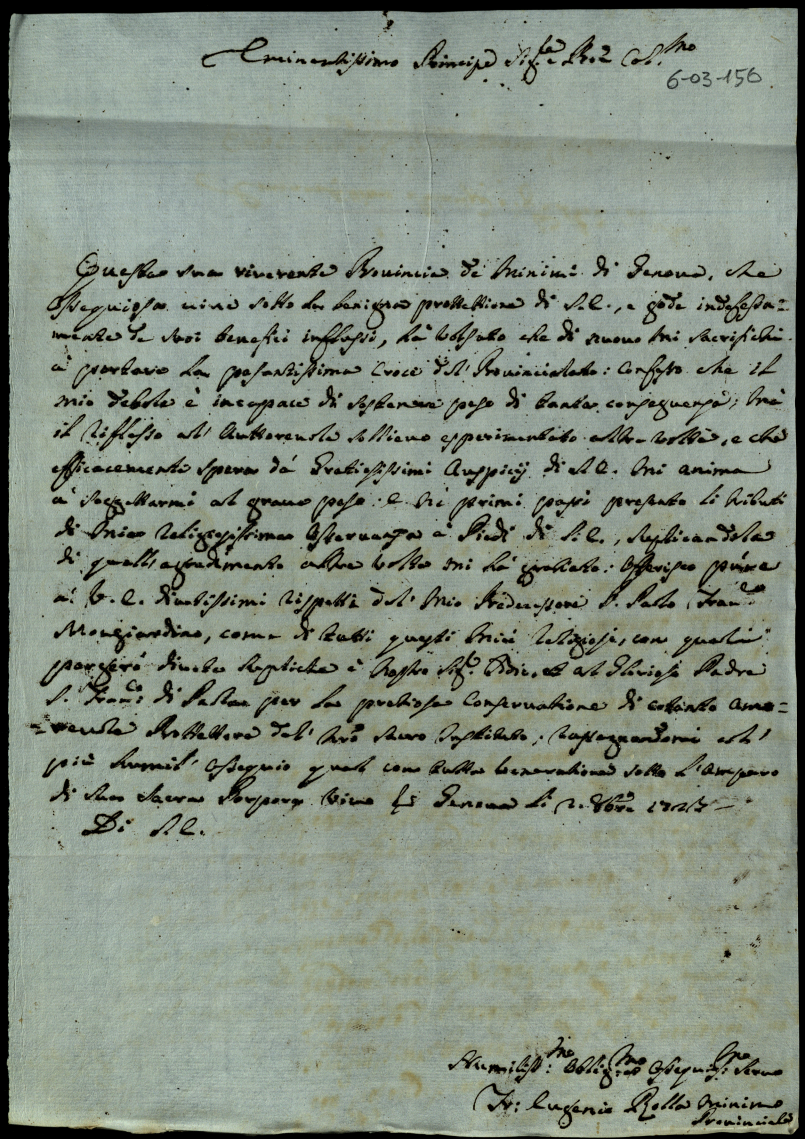 Eminentissimo Principe Sig.re e Pro'ne Col.mo
6-03-156
Questa sua riverente Provincia de Minimi di Genova, che
ossequiosa vive sotto la benigna protettione di S.E., e gode indefessa=
mente de suoi benefici influssi, hà voluto che di nuovo mi sacrifichi
à portare la pesantissima Croce del' Provincialato: Confesso che il
mio debole è incapace di sostenere peso di tanta conseguenza; mà
il riflesso al' Auttorevole sollievo esperimentato altre volte, e che
efficacemente spero dà Gratiosissimi Auspicij di S.E. mi anima
à soggettarmi al grave peso: e nè primi passi presento li tributi
di mia religiosissima osservanza à Piedi di S.E., supplicandola
di quell'agradimento altre volte mi hà gratiato: Offerisco pure
à V.E. divotissimi rispetti del' mio Predecessore P. Paolo Fran.co
Mongiardino, come di tutti questi miei religiosi, con quali
porgerò divote suppliche à nostro Sig.r Dio, et al Glorioso Padre
S. Fran.co di Paola per la pretiosa Conservatione di cotanto amo=
=revole Protettore del' nr̃o sacro Instituto; rassegnandomi al'
più humil' ossequio qual con tutta veneratione sotto l'amparo
di sua Sacra Porpora vivo Genova li 2. 1727
Di S.E.
Humiliss.mo Oblig.mo Ossequ.mo Servo
Fr: Eugenio Rolla Minimo
Provinciale